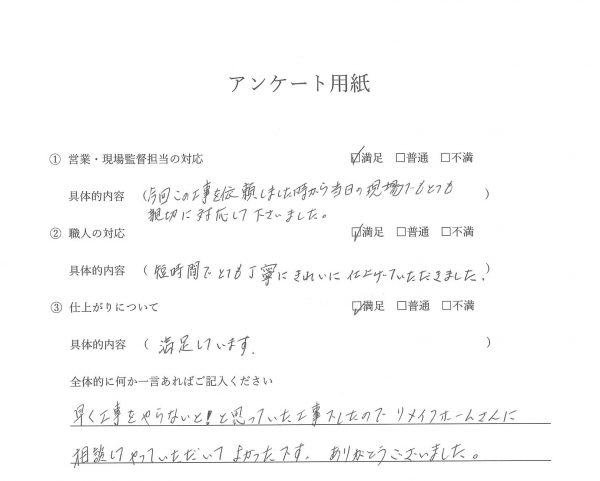 アンケート用紙
① 営業・現場監督担当の対応 ☑満足 □普通 □不満
具体的内容 (今回この工事を依頼しました時から当日の現場でもとても
親切に対応して下さいました。)
② 職人の対応 ☑満足 □普通 □不満
具体的内容 (短時間でとても丁寧にきれいに仕上げていただきました。)
③ 仕上がりについて ☑満足 □普通 □不満
具体的内容 (満足しています。)
全体的に何か一言あればご記入ください
早く工事をやらないと!と思っていた工事でしたので リメイクホームさんに
相談してやっていただいてよかったです。 ありがとうございました。